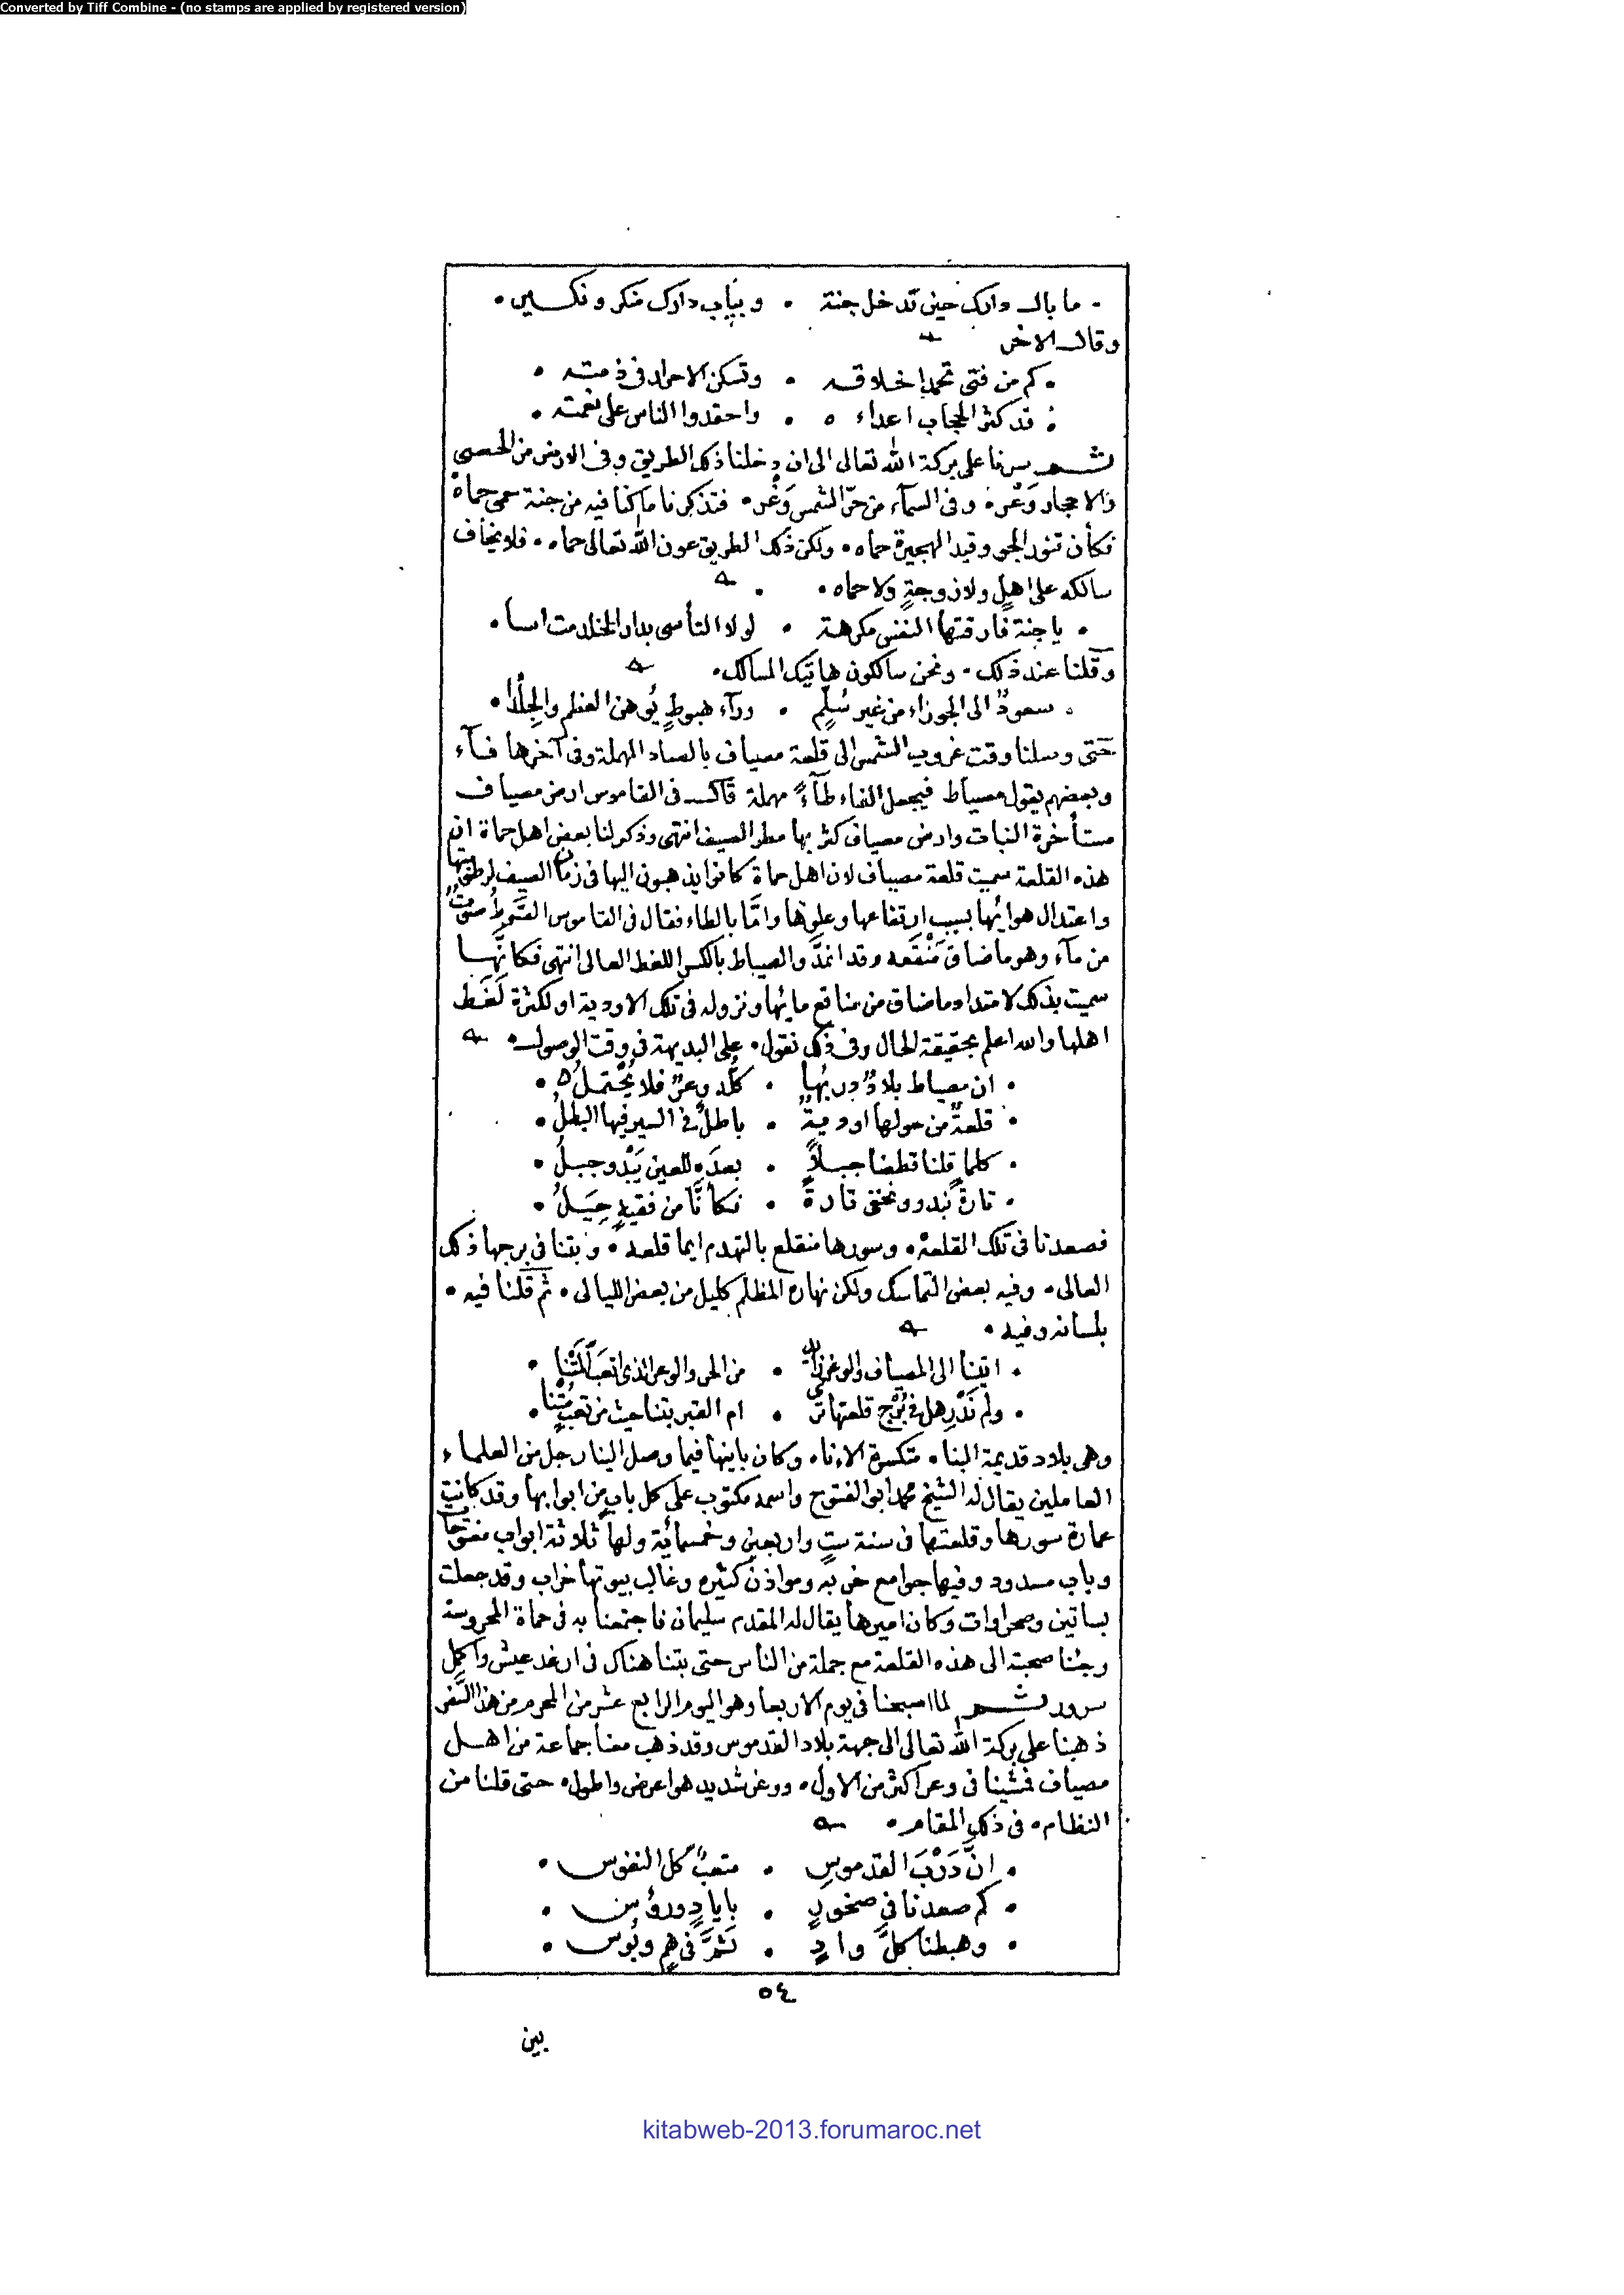 Converted by Tiff Combine - (no stamps are applied by registered version)
۰ ما بال دارك حين تدخل جنة ۰ وبباب دارك منكر ونكير ۰
وقال الآخر
۰ كم من فتى تحمد اخلاقه ۰ وتسكن الاحرار فى ذمته ۰
۰ قد كثر الحجاب اعداءه ۰ واحقدوا الناس على نعمته ۰
ثم سرنا على بركة الله تعالى الى ان دخلنا ذلك الطريق وفى الارض من الحصى
والاحجار وَعْر ۰ وفى السمآء من حرّ الشمس وَغْر ۰ فتذكرنا ما كنا فيه من جنة حمى حماة
فكأن تنور الجو وقيد الهجيرة حماه ۰ ولكن ذلك الطريق عون الله تعالى حماه ۰ فلا يخاف
سالكه على اهلٍ ولا زوجةٍ ولا حماه ۰
۰ يا جنة فارقتها النفس مكرهة ۰ لولا التأسى بدار الخلد مت اسا ۰
وقلنا عند ذلك ۰ ونحن سالكون هاتيك المسالك ۰
۰ صعودٌ الى الجوزاء من غير سُلّمٍ ۰ ورآء هبوطٍ يُوهن العظم والجِلْدا ۰
حتى وصلنا وقت غروب الشمس الى قلعة مصياف بالصاد المهملة وفى آخرها فآء
وبعضهم يقول مصياط فيجعل الفاء طآءً مهملة قال فى القاموس ارض مصياف
مستأخرة النبات وارض مصياف كثر بها مطر الصيف انتهى وذكر لنا بعض اهل حماة ان
هذه القلعة سميت قلعة مصياف لان اهل حماة كانوا يذهبون اليها فى زمان الصيف لرطوبتها
واعتدال هوائها بسبب ارتفاعها وعلوها وامّا بالطاء فقال فى القاموس
من مآء وهو ما ضاق مَنْقَعه وقد امتدّ والصياط بالكسر اللغط العالى انتهى فكانّها
سميت بذلك لامتداد ما ضاق من مناقع مائها ونزوله فى تلك الاودية او لكثرة لَغَط
اهلها والله اعلم بحقيقة الحال وفى ذلك نقول ۰ على البديهة فى وقت الوصول ۰
۰ ان مصياط بلادٌ دربُها ۰ كلّه وعرٌ فلا يُحْتملُ ۰
۰ قلعةٌ من حولها اوديةٌ ۰ باطلٌ فى السير فيها البطلُ ۰
۰ كلما قلنا قطعنا جبلاً ۰ بعدَه للعين يَبْدو جبلُ ۰
۰ تارةً نبدو ونخفى تارةً ۰ فكأنّا من فقيهٍ حِيَلُ ۰
فصعدنا فى تلك القلعة ۰ وسورها منقلع بالتهدم ايما قلعه ۰ وبتنا فى برجها ذلك
العالى ۰ وفيه بعض التماسك ولكن نهاره المظلم كليل من بعض الليالى ۰ ثم قلنا فيه ۰
بلسانه وفيه ۰
۰ اتينا الى المصياف والوغر زائد ۰ من الحر والوعر الذى اتعب المَتْنا ۰
۰ ولم نَدْرِ هل فى بُرْج قلعتها ترى ۰ ام القبر بتنا حيث من تعبٍ مُتْنا ۰
وهى بلاد قديمة البناء ۰ متكسرة الاناء ۰ وكان بانيها فيما وصل الينا رجل من العلماء
العاملين يقال له الشيخ محمد ابو الفتوح واسمه مكتوب على كل باب من ابوابها وقد كانت
عمارة سورها وقلعتها فى سنة ستٍ واربعين وخمسمائة ولها ثلاثة ابواب مفتوحات
وباب مسدود وفيها جوامع خربه ومواذن كثيره وغالب بيوتها خراب وقد جعلت
بساتين وصحراوات وكان اميرها يقال له المقدم سليمان فاجتمعنا به فى حماة المحروسة
وجئنا صحبته الى هذه القلعة مع جملة من الناس حتى بتنا هناك فى ارغد عيش واكمل
سرور ثم لما اصبحنا فى يوم الاربعا وهو اليوم الرابع عشر من المحرم من هذا السّفر
ذهبنا على بركة الله تعالى الى جهة بلاد القدموس وقد ذهب معنا جماعة من اهل
مصياف فمشينا فى وعر اكثر من الاول ۰ ووغر شديد هو اعرض واطول ۰ حتى قلنا من
النظام ۰ فى ذلك المقام ۰
۰ انَّ دَرْبَ القدموسِ ۰ متعبٌ كل النفوس ۰
۰ كم صعدنا فى صخورٍ ۰ بايادٍ ورؤس ۰
۰ وهبطنا كلَّ وادٍ ۰ ثمَّ فى همٍ وبُوس ۰
٥٤
بين
kitabweb-2013.forumaroc.net